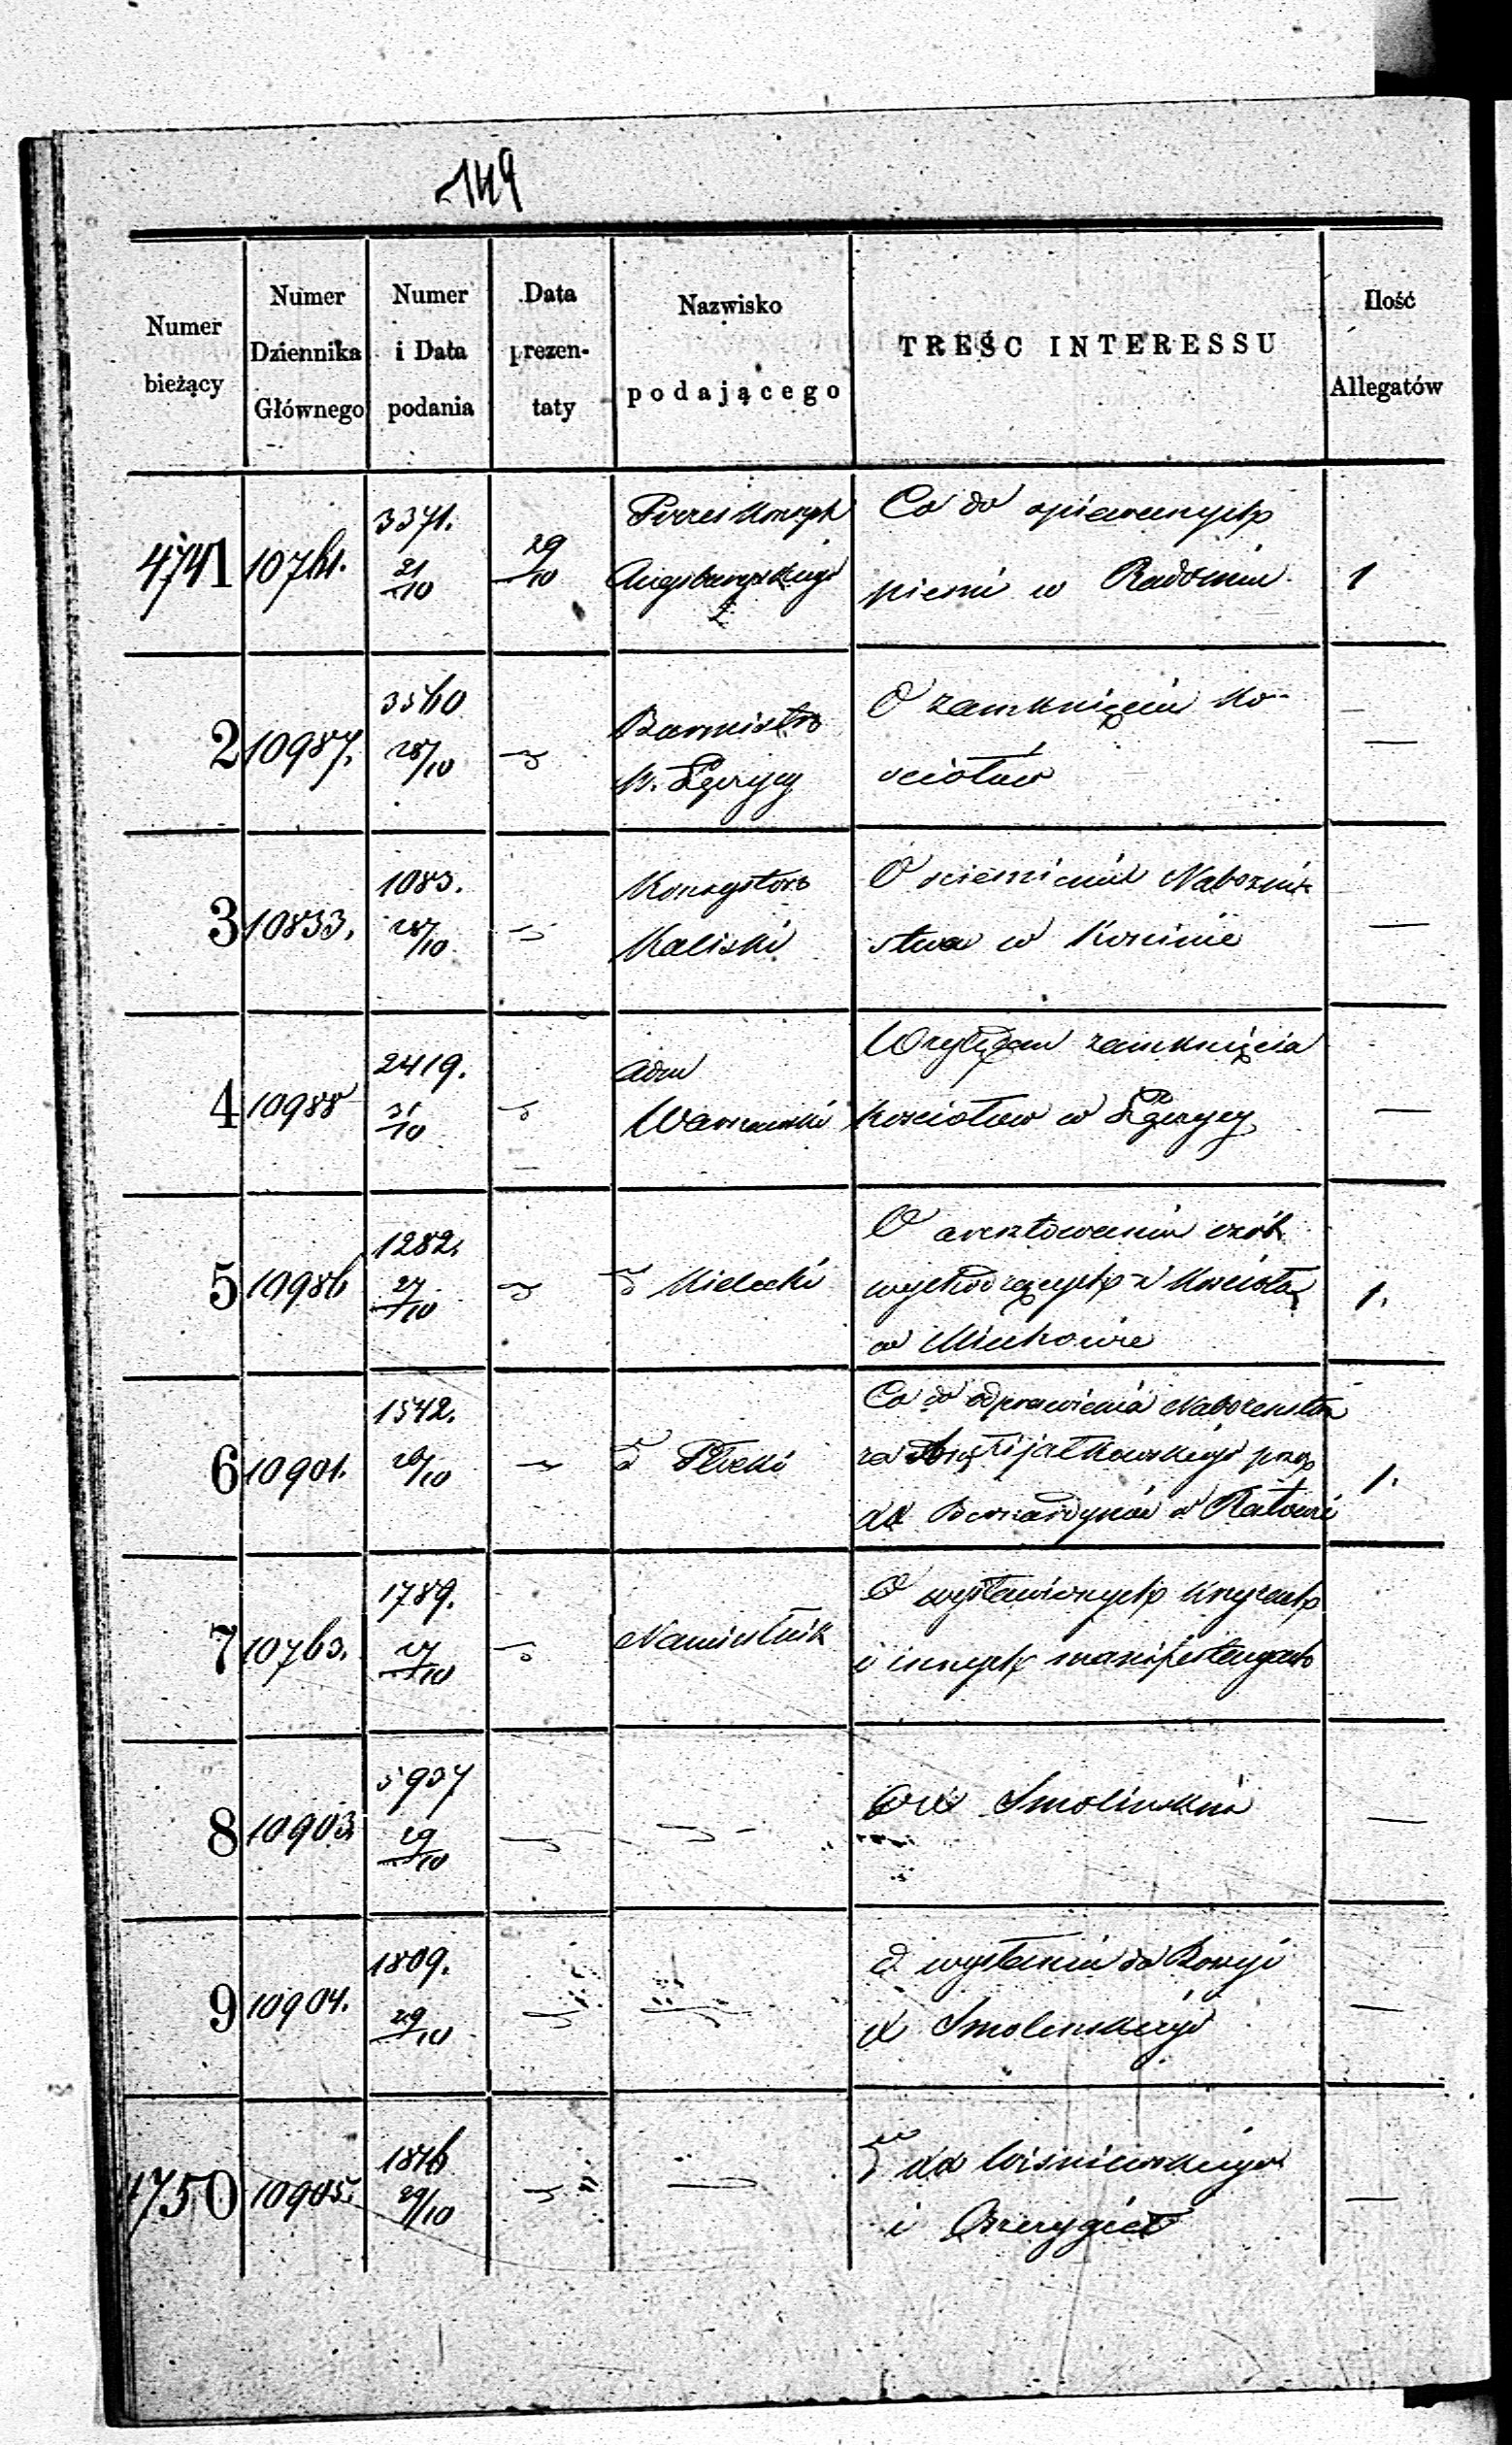 149
Numer bieżący
Numer Dziennika Głównego
Numer i Data podania
Data prezen- taty
Nazwisko podającego
TREŚĆ INTERESSU
Ilość Allegatów
4741 10761. 3371. 21/10 29/10
Augsburgskiego
Co do śpiewanych
pieśni w Radominie
1
2 10987. 3560 28/10
Burmistrz
M. Łęczycy
O zamknięciu Ko-
ściołów
—
3 10833. 1083. 28/10
Konsystorz
Kaliski
O Nabożeń-
stwa w Koninie
—
4 10988 2419. 31/10
Adm
Warszawski
Względem zamknięcia
Kościołów w Łęczycy
—
5 10986 1282. 27/10
Kielecki
O aresztowaniu osób
wychodzących z Kościoła
w Miechowie
1.
6 10901. 1542. 26/10
Płocki
Co do odprawienia Nabożeństwa
za Fijałkowskiego przez
XX Bernardynów w Ratowie
1.
7 10763. 1789. 27/10
Namiestnik
O wystawionych krzyżach
i innych manifestacyach
8 10903. 5937 29/10
Smolinskim
—
9 10904. 1809. 29/10
O wysłaniu do Rossyi
X Smolenskiego
—
4750 10905. 1816 29/10
—
XX Wiśniewskiego
i
—